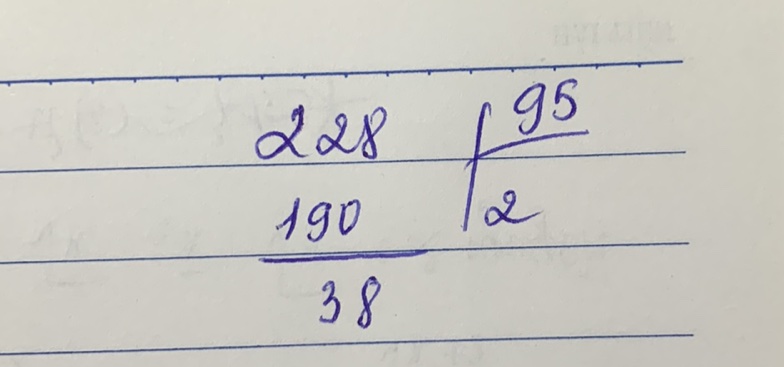 228 95
190 2
38